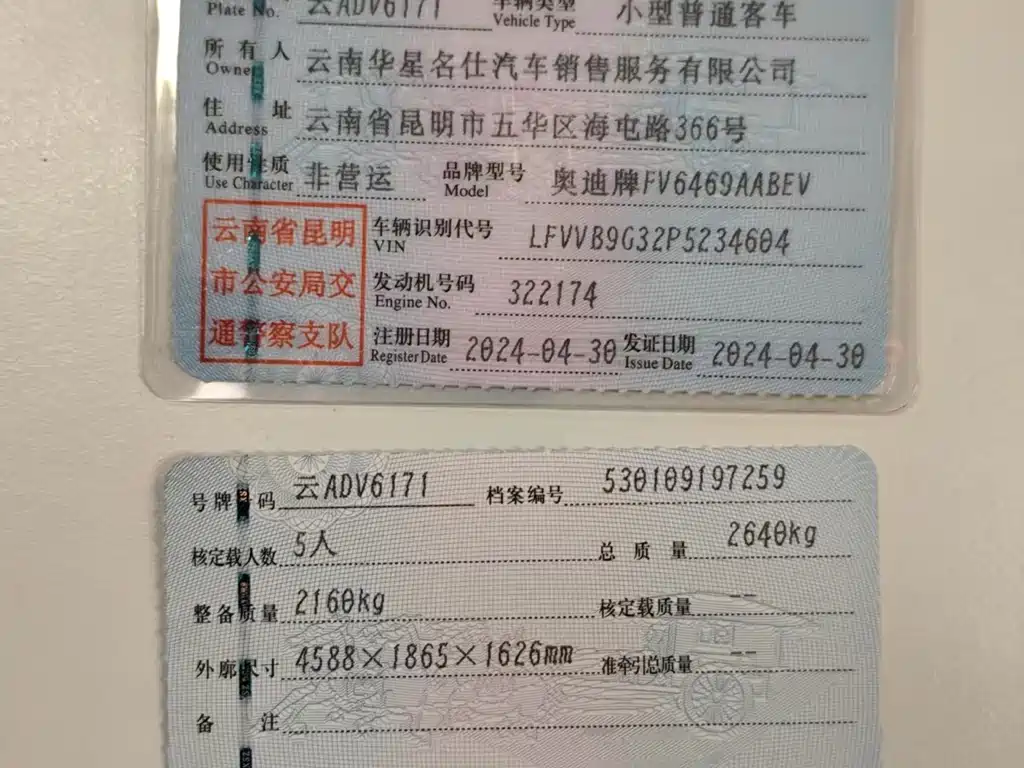 Plate No. 云ADV6171 车辆类型 Vehicle Type 小型普通客车
所有人 Owner 云南华星名仕汽车销售服务有限公司
住址 Address 云南省昆明市五华区海屯路366号
使用性质 Use Character 非营运 品牌型号 Model 奥迪牌FV6469AABEV
云南省昆明
市公安局交
通警察支队
车辆识别代号 VIN LFVVB9G32P5234604
发动机号码 Engine No. 322174
注册日期 Register Date 2024-04-30 发证日期 Issue Date 2024-04-30
号牌号码 云ADV6171 档案编号 530109197259
核定载人数 5人 总质量 2640kg
整备质量 2160kg 核定载质量 --
外廓尺寸 4588×1865×1626mm 准牵引总质量 --
备注